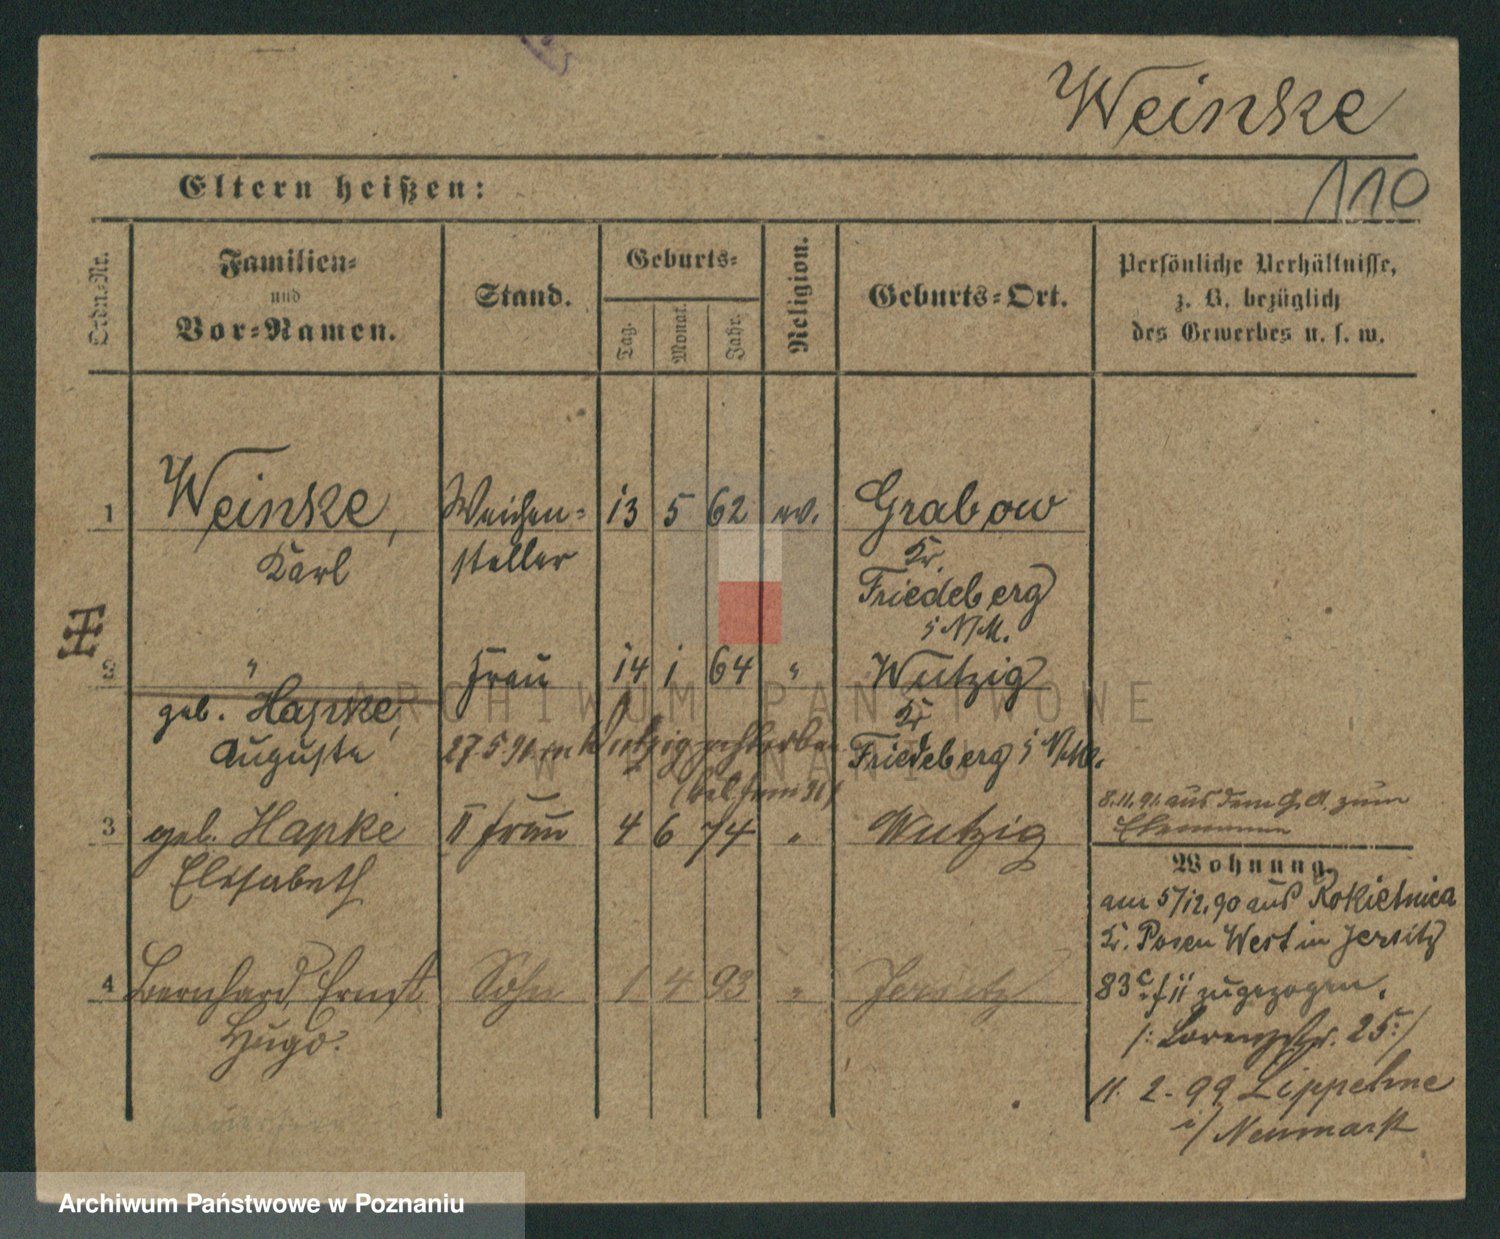 Weinke
110
Eltern heißen:
Ordn.-Nr.
Familien-
und
Vor-Namen.
Stand.
Geburts-
Tag.
Monat.
Jahr.
Religion.
Geburts-Ort.
Persönliche Verhältnisse,
z. B. bezüglich
des Gewerbes u. s. w.
1 Weinke, Weichen- 13 5 62 ev. Grabow
Karl steller Kr.
Friedeberg
i N/M.
2 " Frau 14 1 64 " Wutzig
geb. Hapke, Kr
Auguste 27.5.91 in Wutzig gestorben Friedeberg i N/M.
8.11.91 aus dem G. A. zum
3 geb. Hapke II Frau 4 6 74 " Wutzig
Elisabeth
Wohnung.
am 5/12.90 aus Rokietnica
Kr. Posen West in Jersitz
4 Bernhard, Ernst Sohn 1 4 93 " Jersitz
Hugo.
zugezogen.
/: Lorenzstr. 25:/
11. 2. 99 Lippehne
i/ Neumark
ARCHIWUM PAŃSTWOWE
W POZNANIU
Archiwum Państwowe w Poznaniu